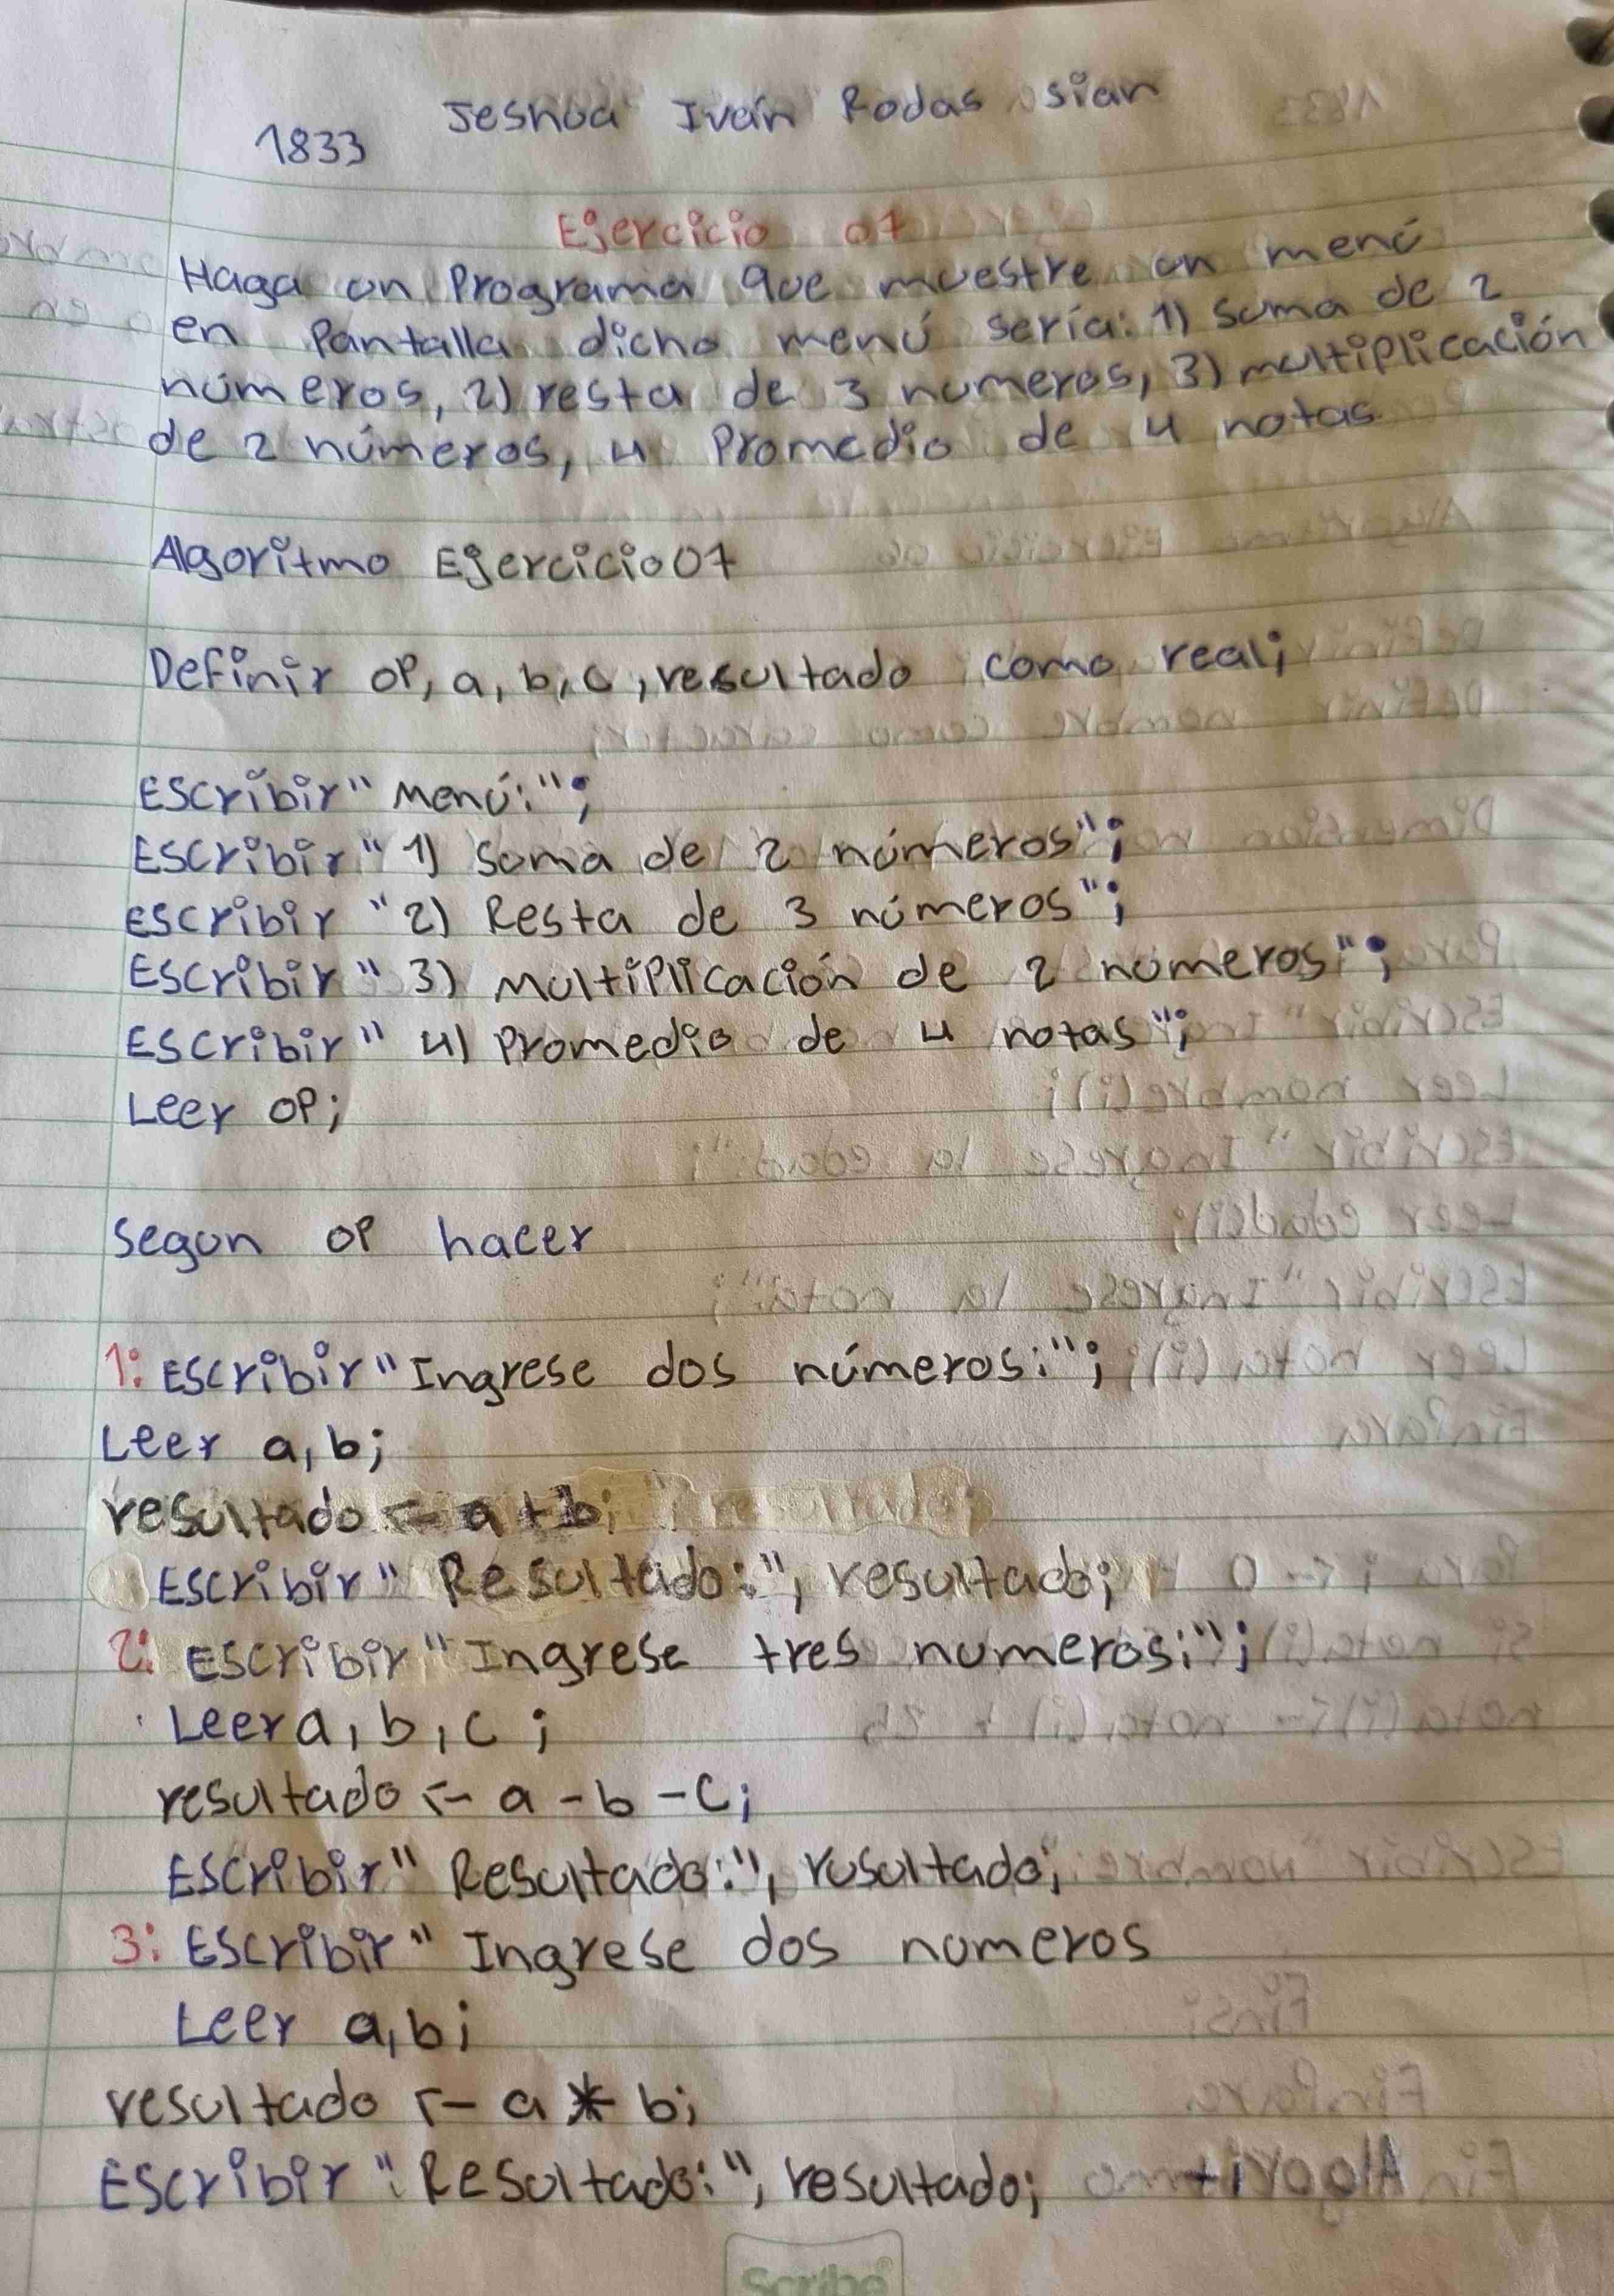 Jeshua Iván Rodas sian
1833
Ejercicio 07
Haga un Programa que muestre un menú
en Pantalla dicho menú sería: 1) suma de 2
números, 2) resta de 3 numeros, 3) multiplicación
de 2 números, 4 Promedio de 4 notas
Algoritmo Ejercicio07
Definir OP, a, b, c, resultado como real;
Escribir "Menú:";
Escribir "1) Suma de 2 números";
escribir "2) Resta de 3 números";
Escribir "3) Multiplicación de 2 numeros";
Escribir "4) Promedio de 4 notas";
Leer OP;
Segun OP hacer
1: Escribir "Ingrese dos números:";
Leer a, b;
resultado <- a + b;
Escribir "Resultado:", resultado;
2: Escribir "Ingrese tres numeros:";
Leer a, b, c;
resultado <- a - b - c;
Escribir "Resultado:", resultado;
3: Escribir "Ingrese dos numeros
Leer a, b;
resultado <- a * b;
Escribir "Resultado:", resultado;
Scribe